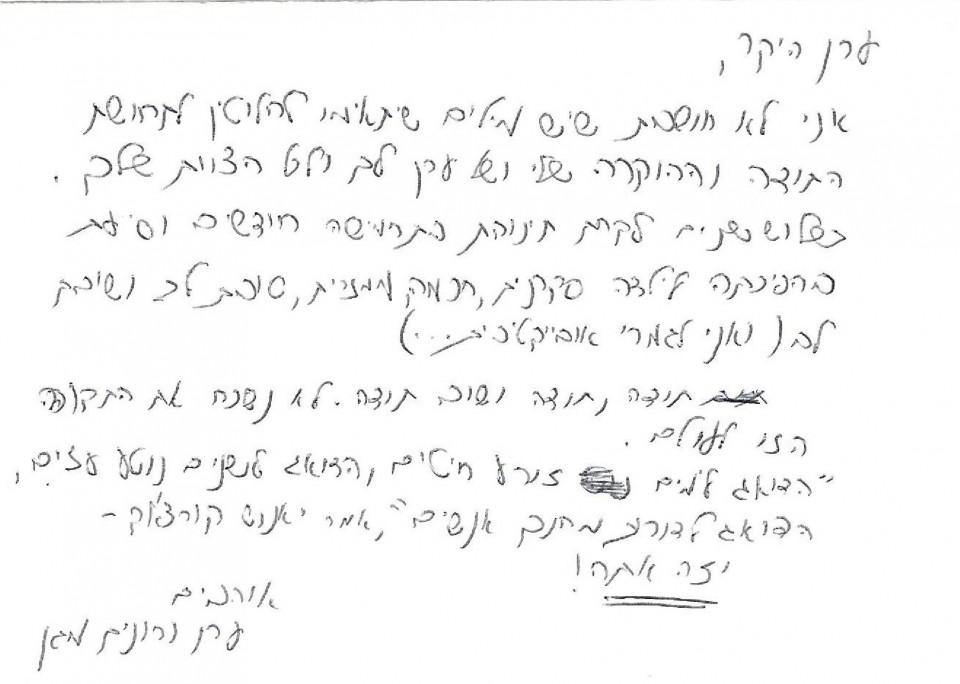 ערן היקר,
אני לא חושבת שיש מילים שיתאימו לחלוטין לתחושת
התודה וההוקרה שלי ושל ערן לך ולכל הצוות שלך.
בשלוש שנים לקחת תינוקת בת חמישה חודשים וסיימת
ילדה סקרנית, חכמה, שובת לב ושובת
לב (ואני לגמרי אובייקטיבית...)
תודה, תודה ושוב תודה. לא נשכח את התקופה
הזו לעולם.
"הדואג לימים זורע חיטים, הדואג לשנים נוטע עצים,
הדואג לדורות מחנך אנשים", אמר יאנוש קורצ'אק -
וזה אתה!
אוהבים
ערן ורונית מגן